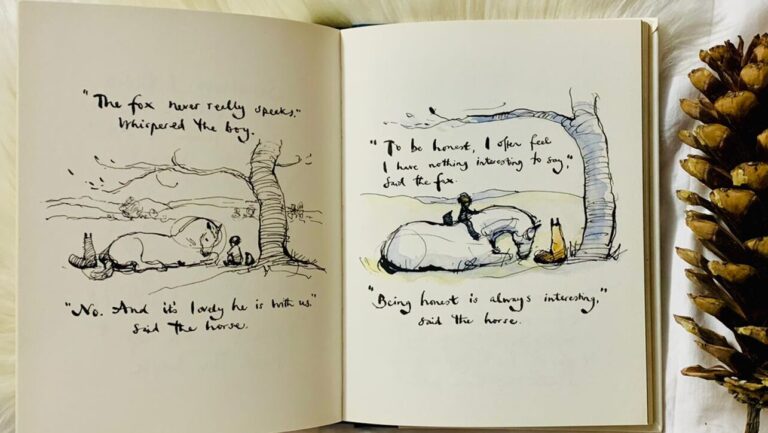 "The fox never really speaks,"
Whispered the boy.
"No. And it's lovely he is with us."
Said the horse.
"To be honest, I often feel
I have nothing interesting to say,"
Said the fox.
"Being honest is always interesting,"
Said the horse.